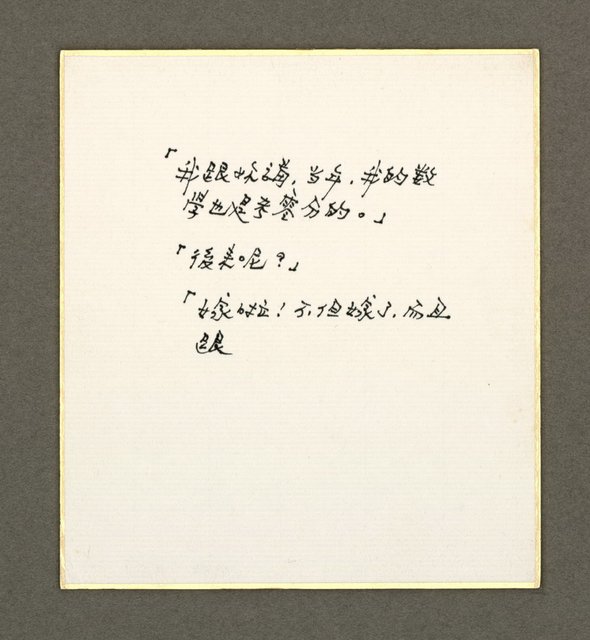 「我跟她講，当年，我的数
學也是考零分的。」
「後來呢？」
「嫁啦！不但嫁了，而且
跟